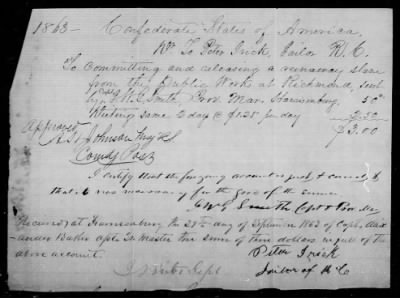 1863 — Confederate States of America
To Peter Irick, Jailor R. C.
To Committing and releasing a runaway slave
from the Public Works at Richmond, sent
by W. E. Smith, Prov. Mar. Harrisonburg. 50
Keeping same 2 days @ $1.25 per day $2.50
$3.00
Approved
Johnson
Comdg Post
I certify that the foregoing account is just & correct, &
that it was necessary for the good of the service
W E Smith Capt & Prov. M
Received at Harrisonburg the 29th day of September 1863 of Capt. Alex
ander Baker Qr. Master the sum of three dollars in full of the
above account.
Peter Irick
Jailor of R Co